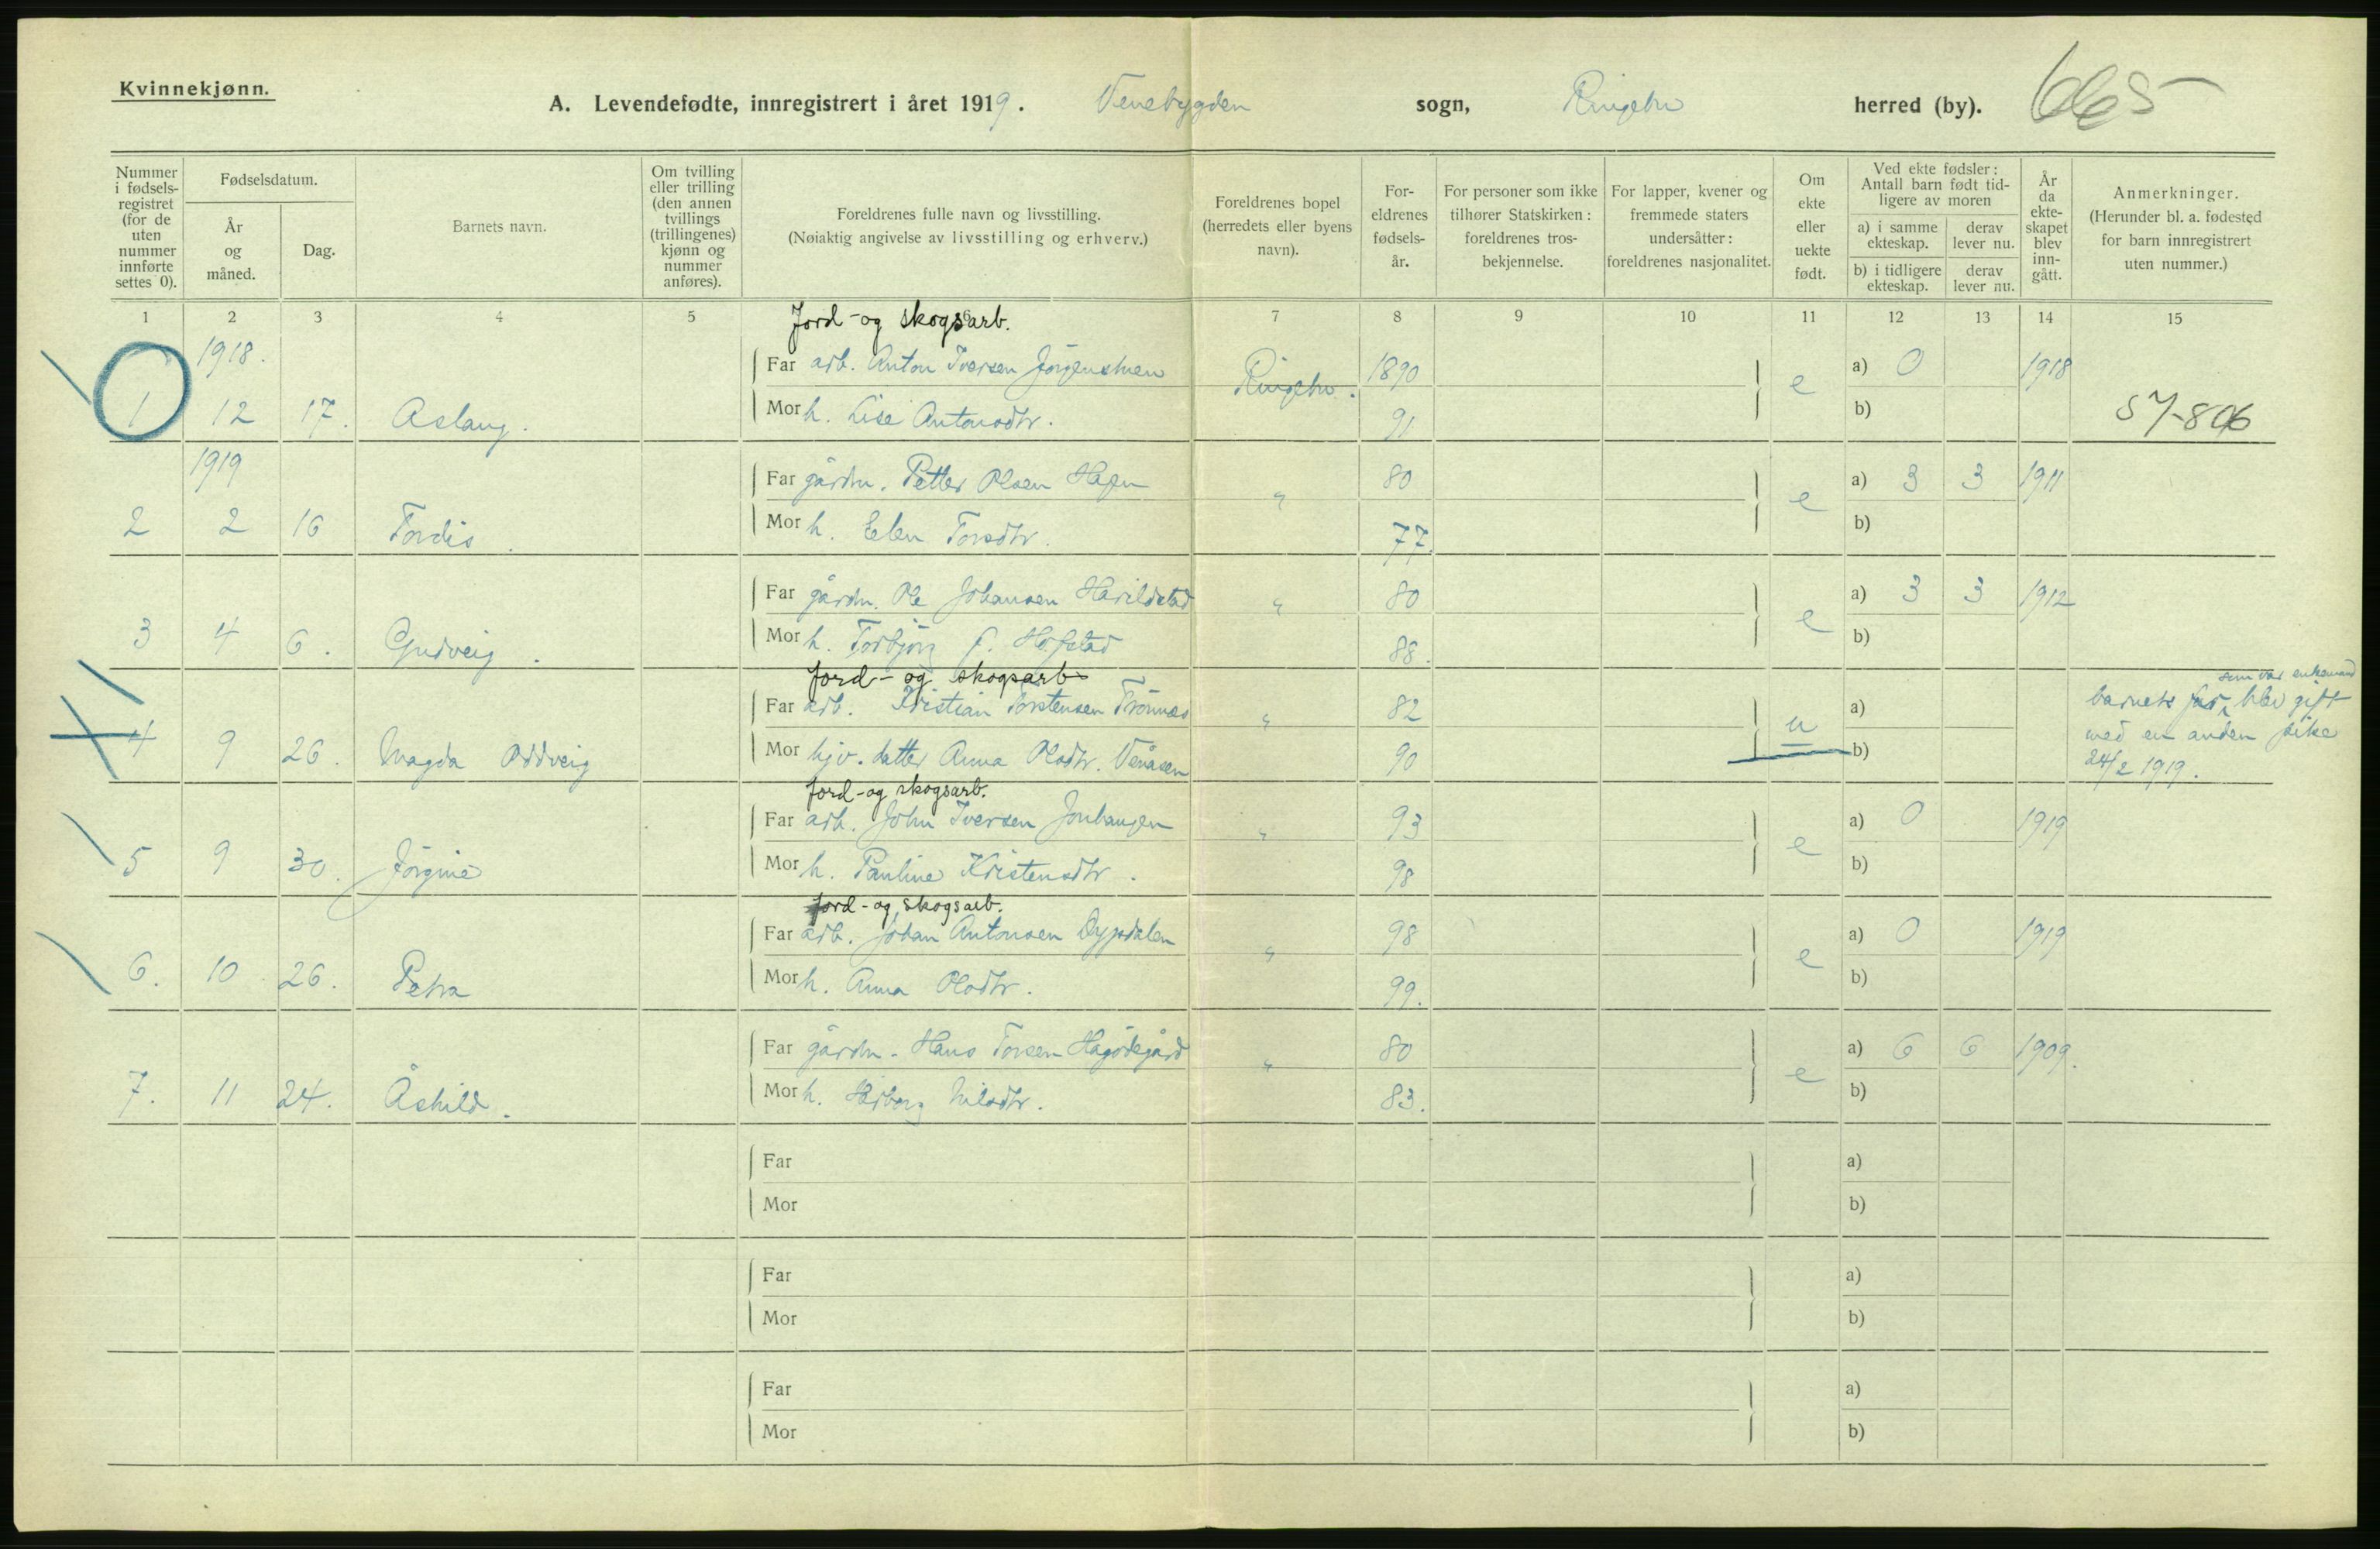 Kvinnekjønn.
A. Levendefødte, innregistrert i året 1919. Venebygden sogn, Ringebu herred (by). 665
Nummer i fødsels-registret (for de uten nummer innførte settes 0).
Fødselsdatum.
År og måned.
Dag.
Barnets navn.
Om tvilling eller trilling (den annen tvillings (trillingenes) kjønn og nummer anføres).
Foreldrenes fulle navn og livsstilling.
(Nøiaktig angivelse av livsstilling og erhverv.)
Foreldrenes bopel (herredets eller byens navn).
For-eldrenes fødsels-år.
For personer som ikke tilhører Statskirken: foreldrenes tros-bekjennelse.
For lapper, kvener og fremmede staters undersåtter: foreldrenes nasjonalitet.
Om ekte eller uekte født.
Ved ekte fødsler: Antall barn født tid-ligere av moren
a) i samme ekteskap.
derav lever nu.
b) i tidligere ekteskap.
derav lever nu.
År da ekte-skapet blev inn-gått.
Anmerkninger.
(Herunder bl. a. fødested for barn innregistrert uten nummer.)
1 2 3 4 5 6 7 8 9 10 11 12 13 14 15
Jord- og skogsarb.
1918.
Far arb. Anton Iversen Jörgenstuen Ringebu. 1890 e a) 0 1918
1 12 17. Aslaug. Mor h. Lise Antonsdtr. 91 b) 57-806
1919
Far gårdbr. Petter Olsen Hagen " 80 e a) 3 3 1911
2 2 16 Tordis. Mor h. Elen Torsdtr. 77. b)
Far gårdbr. Ole Johansen Harildstad " 80 e a) 3 3 1912
3 4 6. Gudveig. Mor h. Torbjörg f. Hofstad 88. b)
Jord- og skogsarb.
Far arb. Kristian Torstensen Trönnes " 82 u a) barnets far, som var enkemand blev gift
4 9 26. Magda Oddveig Mor hjv. datter Anna Olsdtr. Venåsen 90 b) med en anden pike
24/2 1919.
Jord- og skogsarb.
Far arb. John Iversen Jonhaugen " 93 e a) 0 1919
5 9 30. Jörgine Mor h. Pauline Kristensdtr. 98 b)
Jord- og skogsarb.
Far arb. Johan Antonsen Dypdalen " 98 e a) 0 1919
6. 10 26. Petra Mor h. Anna Olsdtr. 99. b)
Far gårdbr. Hans Torsen Hagödegård " 80 e a) 6 6 1909.
7. 11 24. Åshild. Mor h. Nilsdtr. 83. b)
Far a)
Mor b)
Far a)
Mor b)
Far a)
Mor b)